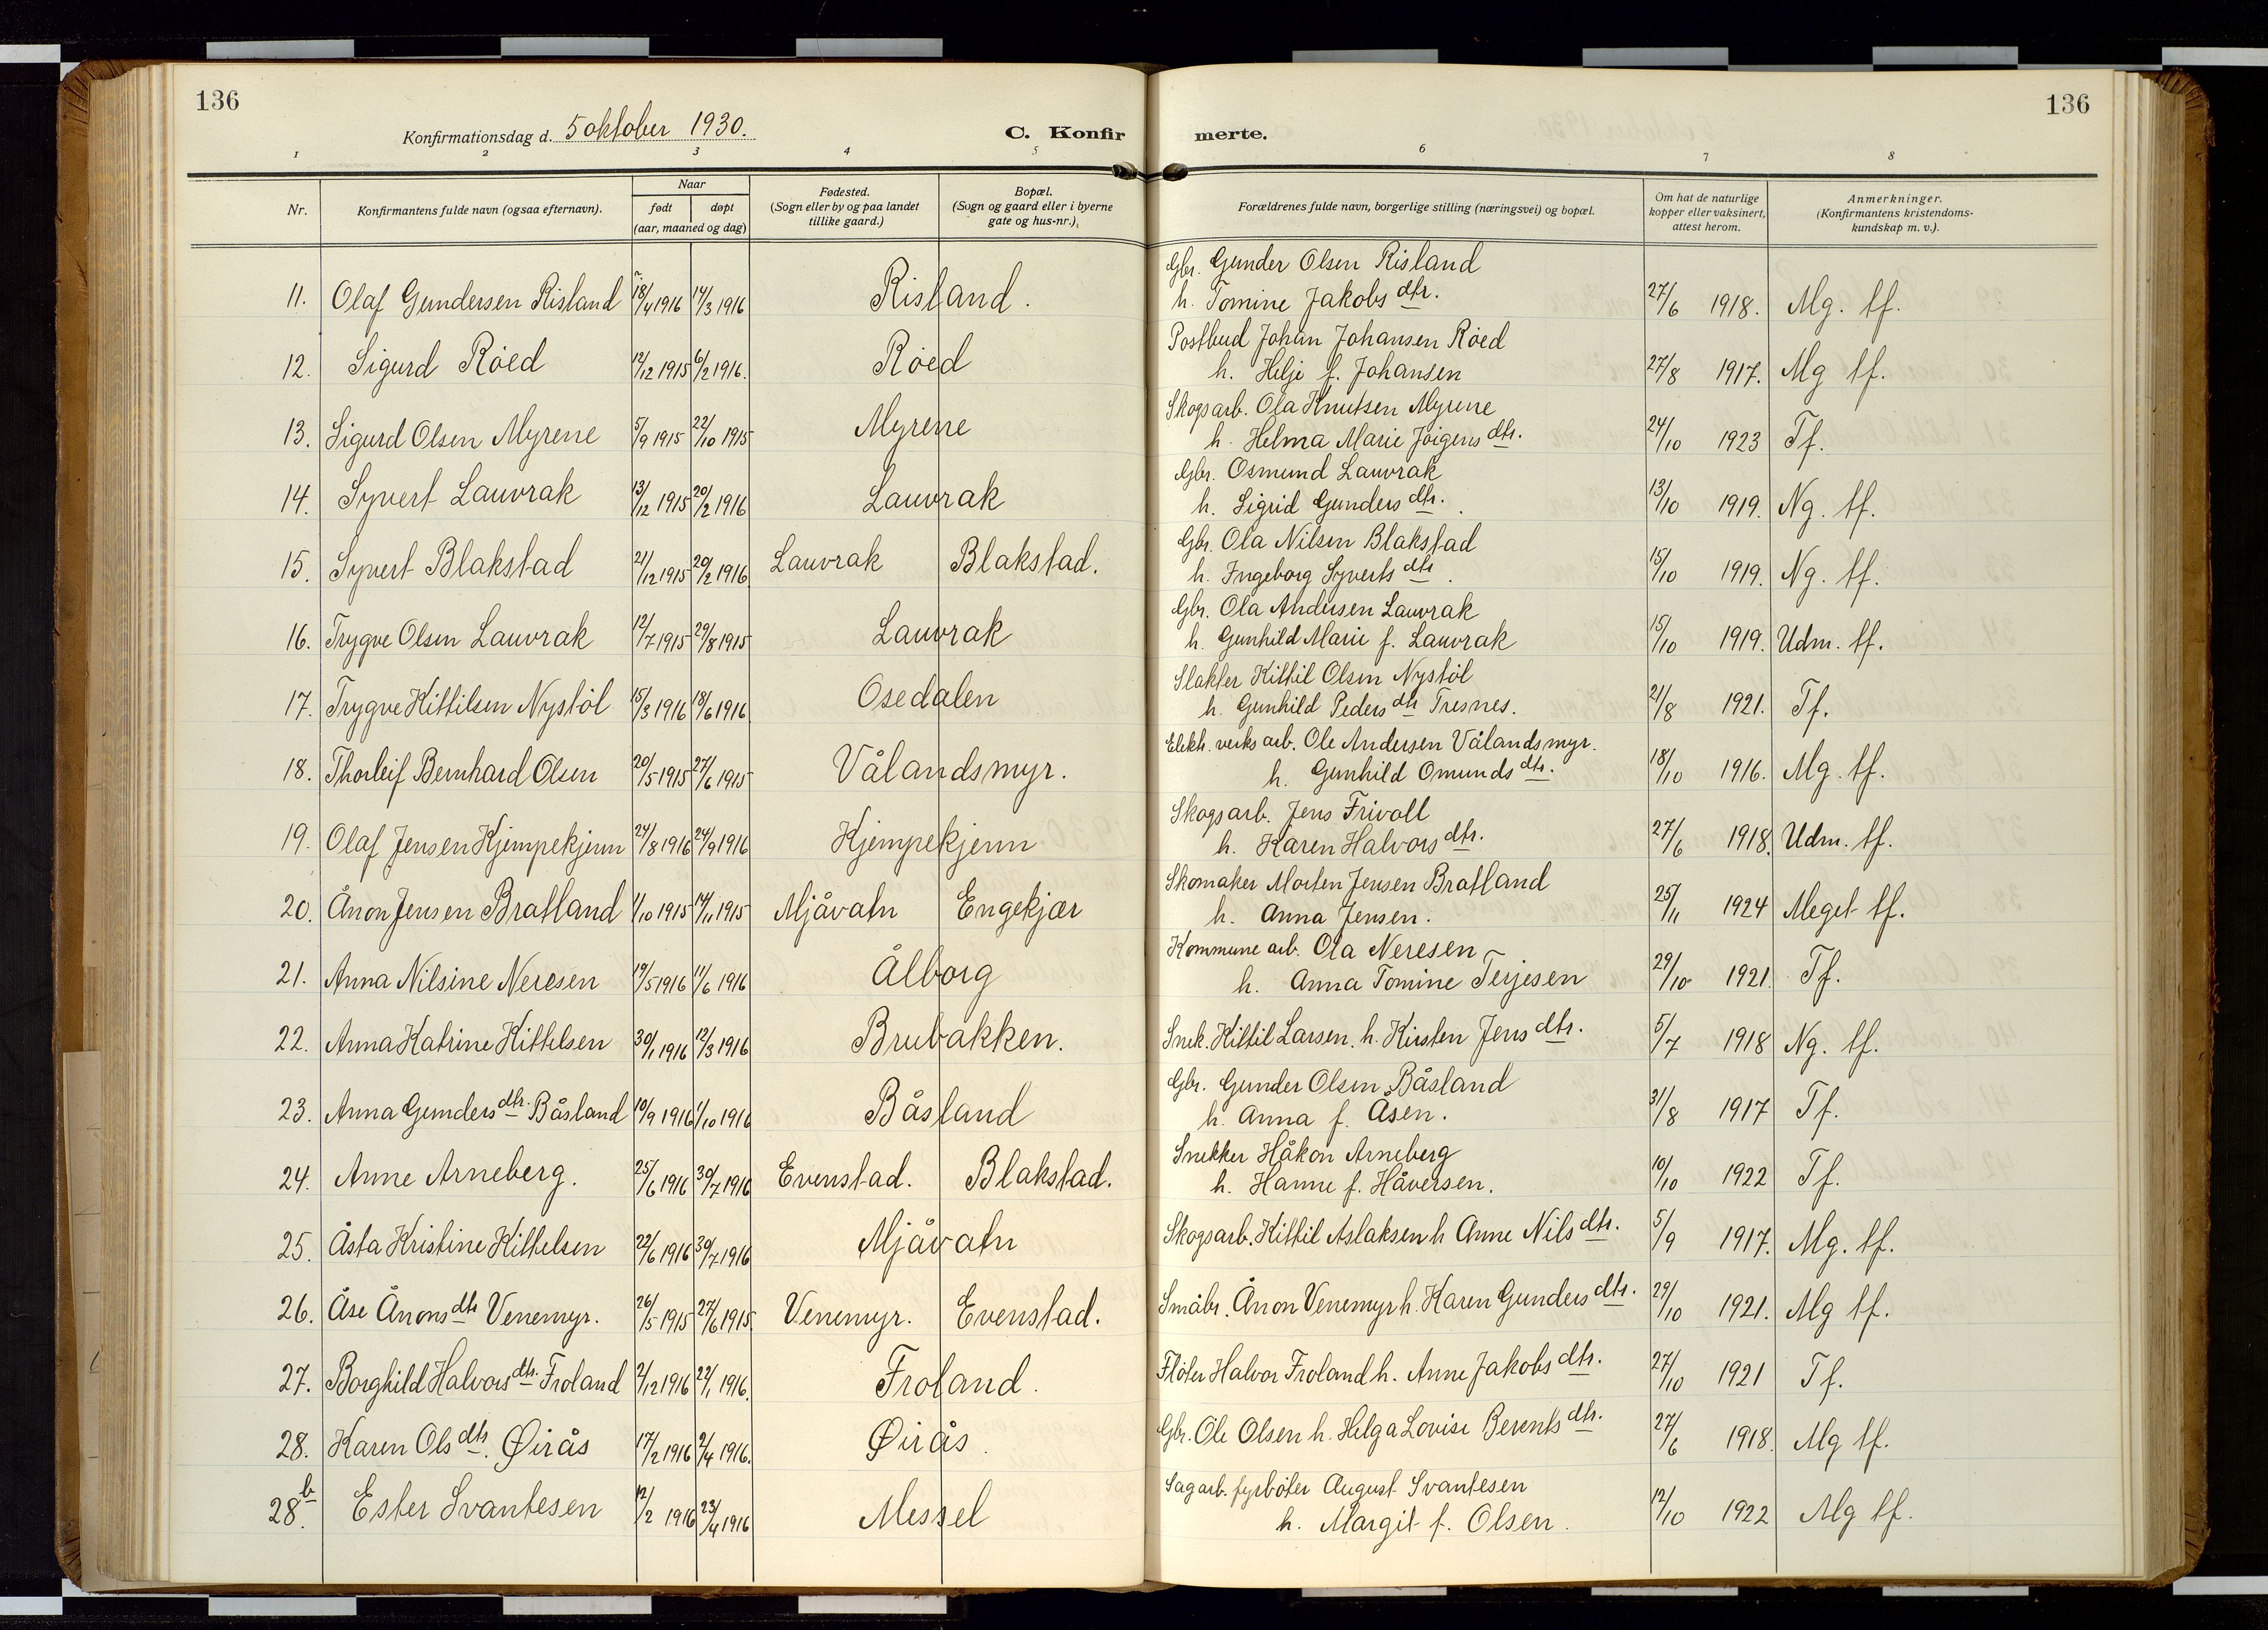 136
136
Konfirmationsdag d. 5 oktober 1930.
C. Konfir
merte.
1 2 3 4 5 6 7 8
Nr.
Konfirmantens fulde navn (ogsaa efternavn).
Naar
født døpt
(aar, maaned og dag)
Fødested.
(Sogn eller by og paa landet
tillike gaard.)
Bopæl.
(Sogn og gaard eller i byerne
gate og hus-nr.).
Forældrenes fulde navn, borgerlige stilling (næringsvei) og bopæl.
Om hat de naturlige
kopper eller vaksinert,
attest herom.
Anmerkninger.
(Konfirmantens kristendoms-
kundskap m. v.).
Gbr. Gunder Olsen Risland
11. Olaf Gundersen Risland 18/4 1916 14/3 1916 Risland. h. Tomine Jakobs dtr. 27/6 1918. Mg. tf.
Postbud Johan Johansen Röed
12. Sigurd Röed 12/12 1915 6/2 1916. Röed h. Helje f. Johansen 27/8 1917. Mg tf.
Skogsarb. Ola Knutsen Myrene
13. Sigurd Olsen Myrene 5/9 1915 22/10 1915 Myrene h. Helma Marie Jörgens dtr. 24/10 1923 Tf.
Gbr. Osmund Lauvrak
14. Syvert Lauvrak 13/12 1915 20/2 1916 Lauvrak h. Sigrid Gunders dtr. 13/10 1919. Ng. tf.
Gbr. Ola Nilsen Blakstad
15. Syvert Blakstad 21/12 1915 20/2 1916 Lauvrak Blakstad. h. Ingeborg Syverts dtr. 15/10 1919. Ng. tf.
Gbr. Ola Andersen Lauvrak
16. Trygve Olsen Lauvrak 12/7 1915 29/8 1915 Lauvrak h. Gunhild Marie f. Lauvrak 15/10 1919. Udm. tf.
Slakter Kittil Olsen Nystöl
17. Trygve Kittilsen Nystöl 15/3 1916 18/6 1916 Osedalen h. Gunhild Peders dtr Tresnes. 21/8 1921. Tf.
Elektr. verks arb. Ole Andersen Vålandsmyr.
18. Thorleif Bernhard Olsen 20/5 1915 27/6 1915 Vålandsmyr. h. Gunhild Omunds dtr. 18/10 1916. Mg. tf.
Skogsarb. Jens Frivoll
19. Olaf Jensen Kjempekjenn 24/8 1916 24/9 1916 Kjempekjenn h. Karen Halvors dtr. 27/6 1918. Udm. tf.
Skomaker Morten Jensen Bratland
20. Ånon Jensen Bratland 1/10 1915 14/11 1915 Mjåvatn Engekjær h. Anna Jensen. 25/11 1924 Meget tf.
Kommune arb. Ola Neresen
21. Anna Nilsine Neresen 19/5 1916 11/6 1916 Ålborg h. Anna Tomine Terjesen 29/10 1921. Tf.
22. Anna Katrine Kittelsen 30/1 1916 12/3 1916 Brubakken. Snek. Kittil Larsen. h. Kirsten Jens dtr. 5/7 1918 Ng. tf.
Gbr. Gunder Olsen Båsland
23. Anna Gunders dtr. Båsland 10/9 1916 1/10 1916 Båsland h. Anna f. Åsen. 31/8 1917 Tf.
Snekker Håkon Arneberg
24. Anne Arneberg. 25/6 1916 30/7 1916 Evenstad. Blakstad. h. Hanne f. Håversen. 10/10 1922 Tf.
25. Åsta Kristine Kittelsen 22/6 1916 30/7 1916 Mjåvatn Skogsarb. Kittil Aslaksen h Anne Nils dtr. 5/9 1917. Mg. tf.
26. Åse Ånons dtr Venemyr. 26/5 1915 27/6 1915. Venemyr. Evenstad. Småbr. Ånon Venemyr h. Karen Gunders dtr. 29/10 1921. Mg tf.
27. Borghild Halvors dtr. Froland 2/12 1916 22/1 1916. Froland. Flöter Halvor Froland h. Anne Jakobs dtr. 27/10 1921 Tf.
28. Karen Ols dtr. Øirås 17/2 1916 2/4 1916. Øirås. Gbr. Ole Olsen h. Helga Lovise Berents dtr. 27/6 1918. Mg tf.
Sagarb. fyrböter August Svantesen
28 b. Ester Svantesen 12/2 1916 23/4 1916 Messel h. Margit f. Olsen. 12/10 1922 Mg tf.